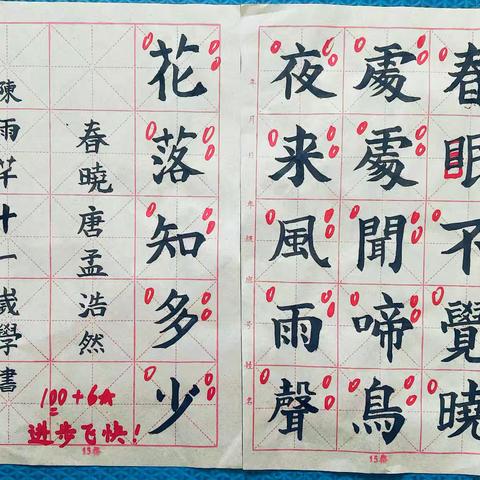 春眠不覺曉
處處聞啼鳥
夜来風雨聲
花落知多少
春曉唐孟浩然
陳雨芊十一歲學書
100+6A
进步飞快!
15格
15格